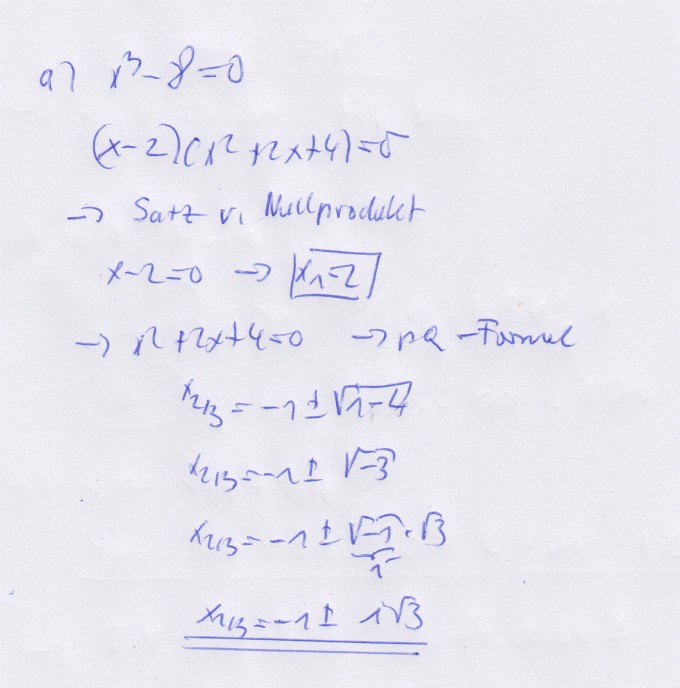 a) x³-8=0
(x-2)(x²+2x+4)=0
→ Satz v. Nullprodukt
x-2=0 → x₁=2
→ x²+2x+4=0 → pq-Formel
x₂/₃=-1±√1-4
x₂/₃=-1±√-3
x₂/₃=-1±√-1·√3
i
x₂/₃=-1± i√3